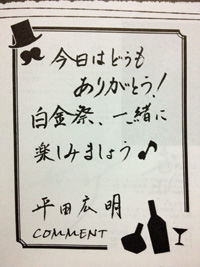 今日はどうも
ありがとう!
白金祭、一緒に
楽しみましょう♪
平田広明
COMMENT